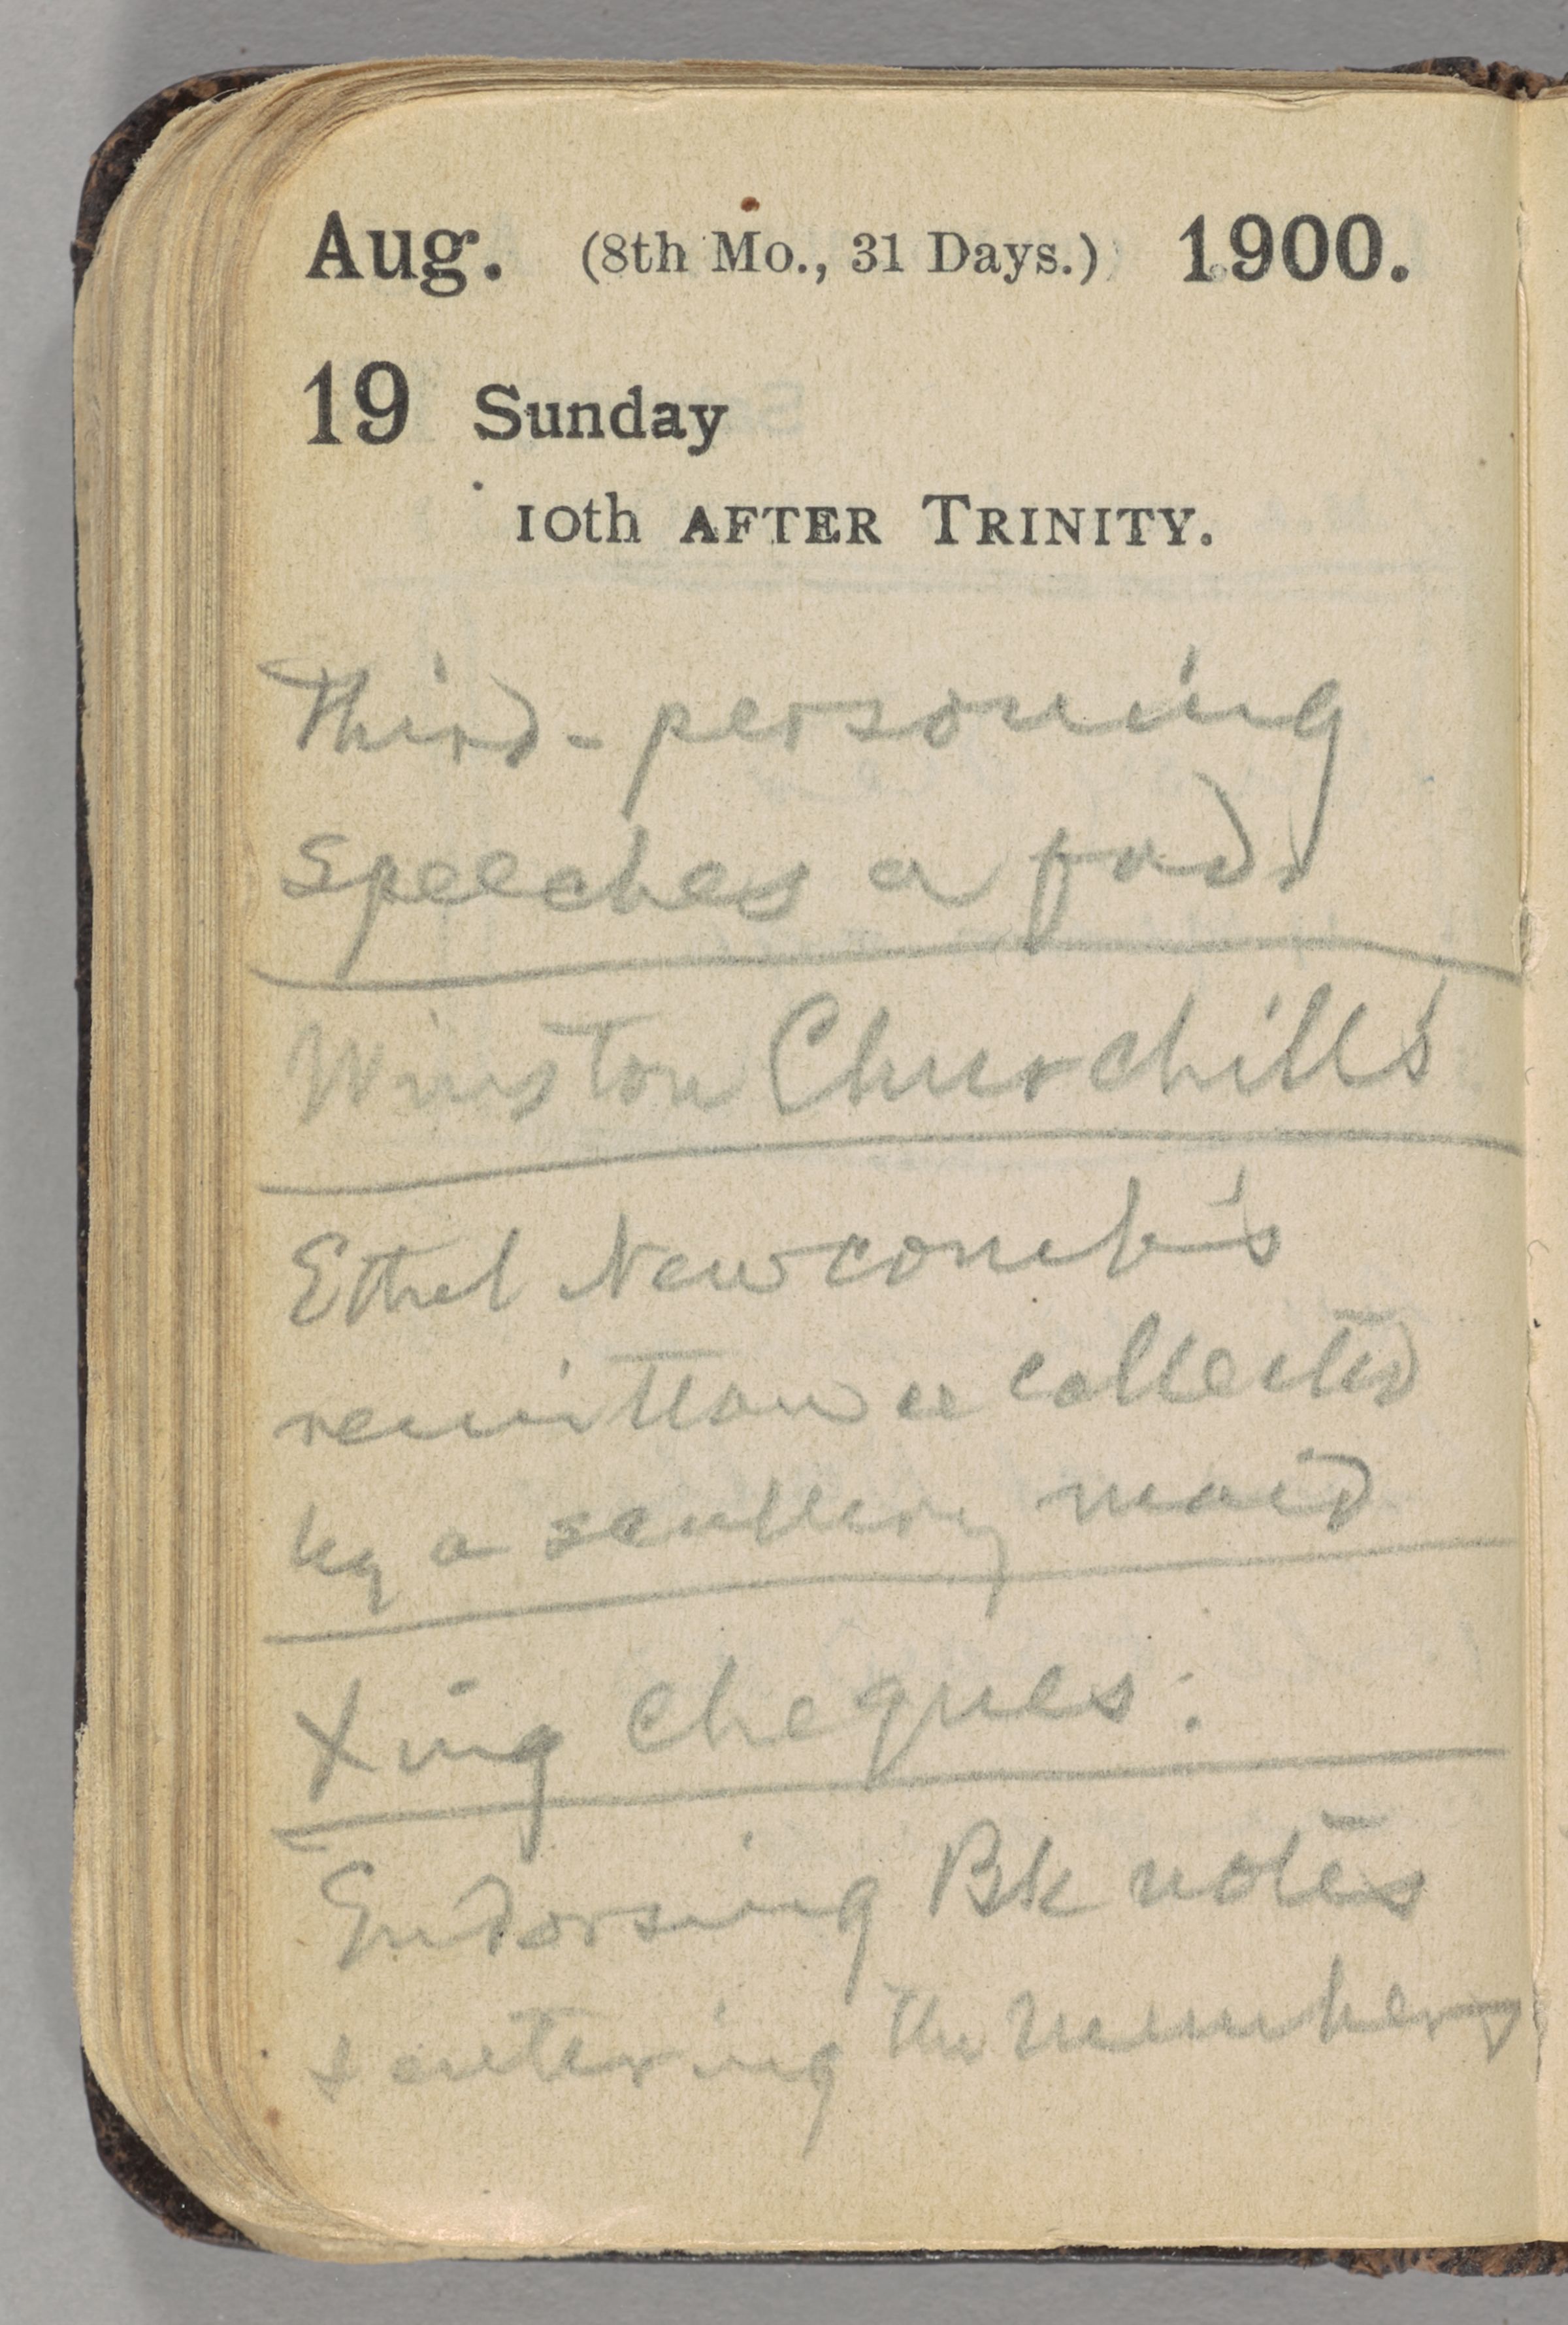 Aug. (8th Mo., 31 Days.) 1900.
19 Sunday
10th AFTER TRINITY.
Third-personing
speeches a fad.
Winston Churchill's
Ethel Newcomb's
remittance collected
by a scullery maid
Xing cheques:
Endorsing Bk notes
& entering the numbers